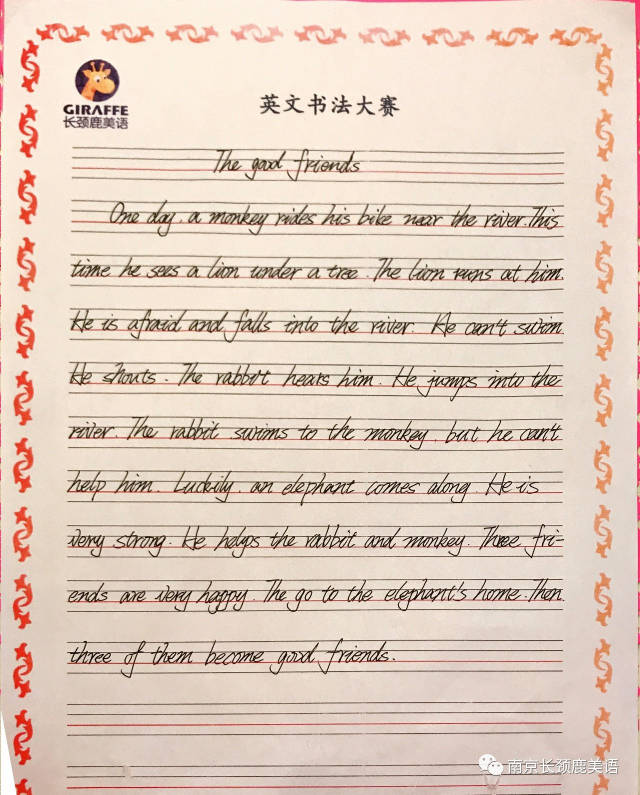 GIRAFFE
长颈鹿美语
英文书法大赛
The good friends
One day, a monkey rides his bike near the river. This
time he sees a lion under a tree. The lion runs at him.
He is afraid and falls into the river. He can't swim.
He shouts. The rabbit hears him. He jumps into the
river. The rabbit swims to the monkey, but he can't
help him. Luckily, an elephant comes along. He is
very strong. He helps the rabbit and monkey. Three fri-
ends are very happy. The go to the elephant's home. Then
three of them become good friends.
南京长颈鹿美语